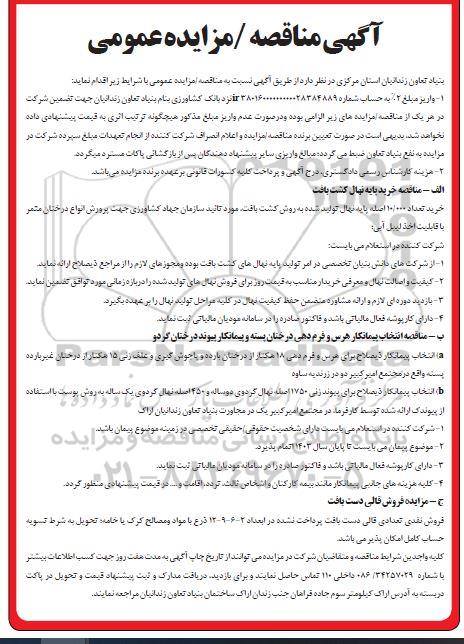 آگهی مناقصه /مزایده عمومی
بنیاد تعاون زندانیان استان مرکزی در نظر دارد از طریق آگهی نسبت به مناقصه/مزایده عمومی با شرایط زیر اقدام نماید:
۱- واریز مبلغ ۲٪ به حساب شماره ir نزد بانک کشاورزی بنام بنیاد تعاون زندانیان جهت تضمین شرکت
در هر یک از مناقصه/مزایده های زیر الزامی بوده ودرصورت عدم واریز مبلغ مذکور هیچگونه ترتیب اثری به قیمت پیشنهادی داده
نخواهد شد، بدیهی است در صورت تعیین برنده مناقصه/مزایده و اعلام انصراف شرکت کننده از انجام تعهدات مبلغ سپرده شرکت در
مزایده به نفع بنیاد تعاون ضبط می گردد؛ مبالغ واریزی سایر پیشنهاد دهندگان پس از بازگشائی پاکات مسترد میگردد.
۲- هزینه کارشناس رسمی دادگستری، درج آگهی و پرداخت کلیه کسورات قانونی بر عهده برنده مزایده می باشد.
الف – مناقصه خرید پایه نهال کشت بافت
خرید تعداد ۱۰/۰۰۰ اصله پایه نهال تولید شده به روش کشت بافت، مورد تائید سازمان جهاد کشاورزی جهت پرورش انواع درختان مثمر
با قابلیت اخذ لیبل آبی؛
شرکت کننده در استعلام می بایست:
۱- از شرکت های دانش بنیان تخصصی در امر تولید پایه نهال های کشت بافت بوده ومجوزهای لازم را از مراجع ذیصلاح ارائه نماید.
۲- کیفیت و اصالت نهال و معرفی خریدار مناسب به قیمت روز برای فروش نهال های تولید شده را در بازه زمانی مورد توافق تضمین نماید.
۳- بازدید دوره ای لازم و ارائه مشاوره متضمن حفظ کیفیت نهال در کلیه مراحل تولید نهال را بر عهده بگیرد.
۴- دارای کارپوشه فعال مالیاتی باشد و فاکتور صادره را در سامانه مودیان مالیاتی ثبت نماید.
ب – مناقصه انتخاب پیمانکار هرس و فرم دهی درختان پسته و پیمانکار پیوند درختان گردو
a) انتخاب پیمانکار ذیصلاح برای هرس و فرم دهی ۱۸ هکتار از درختان بارده و پاجوش گیری و علف زنی ۱۵ هکتار از درختان غیربارده
پسته واقع در مجتمع امیر کبیر دو در زرندیه ساوه
b) انتخاب پیمانکار ذیصلاح برای پیوند زنی ۱۷۵۰ اصله نهال گردوی دوساله و ۴۵۰ اصله نهال گردوی یک ساله به روش پوست با استفاده
از پیوندک ارائه شده توسط کارفرما، در مجتمع امیر کبیر یک در مجاورت بنیاد تعاون زندانیان اراک
۱- شرکت کننده در استعلام می بایست دارای شخصیت حقوقی/حقیقی تخصصی در زمینه موضوع پیمان باشد.
۲- موضوع پیمان می بایست تا پایان سال ۱۴۰۳ اتمام پذیرد.
۳- دارای کارپوشه فعال مالیاتی باشد و فاکتور صادره را در سامانه مودیان مالیاتی ثبت نماید.
۴- کلیه هزینه های جانبی پیمانکار مانند بیمه کارکنان و اشخاص ثالث، تردد، اقامت و .... در قیمت پیشنهادی منظور گردد.
ج – مزایده فروش قالی دست بافت
فروش نقدی تعدادی قالی دست بافت پرداخت نشده در ابعاد ۲-۶-۹-۱۲ ذرع با مواد ومصالح کرک یا خامه؛ تحویل به شرط تسویه
حساب کامل امکان پذیر می باشد.
کلیه واجدین شرایط مناقصه و متقاضیان شرکت در مزایده می توانند از تاریخ چاپ آگهی به مدت هفت روز جهت کسب اطلاعات بیشتر
با شماره ۳۴۲۵۷۰۲۹ /۰۸۶ داخلی ۱۱۰ تماس حاصل نمایند و برای بازدید، دریافت مدارک و ثبت پیشنهاد قیمت و تحویل در پاکت
دربسته به آدرس اراک کیلومتر سوم جاده فراهان جنب زندان اراک ساختمان بنیاد تعاون زندانیان مراجعه نمایند.